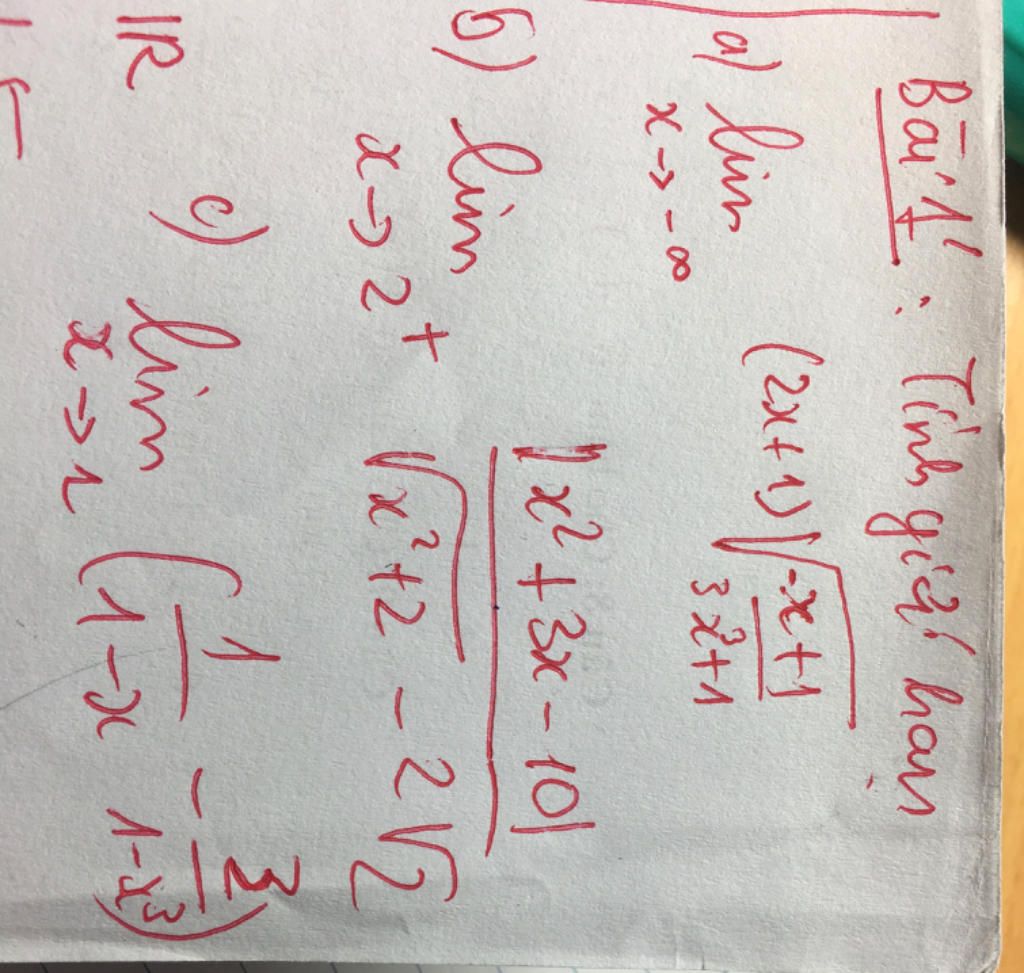 Bài 1: Tính giới hạn
a) lim x→-∞ (2x+1)√((-x+1)/(3x²+1))
b) lim x→2⁺ |x²+3x-10|/(√(x²+2) - 2√2)
c) lim x→1 (1/(1-x) - 3/(1-x³))
IR